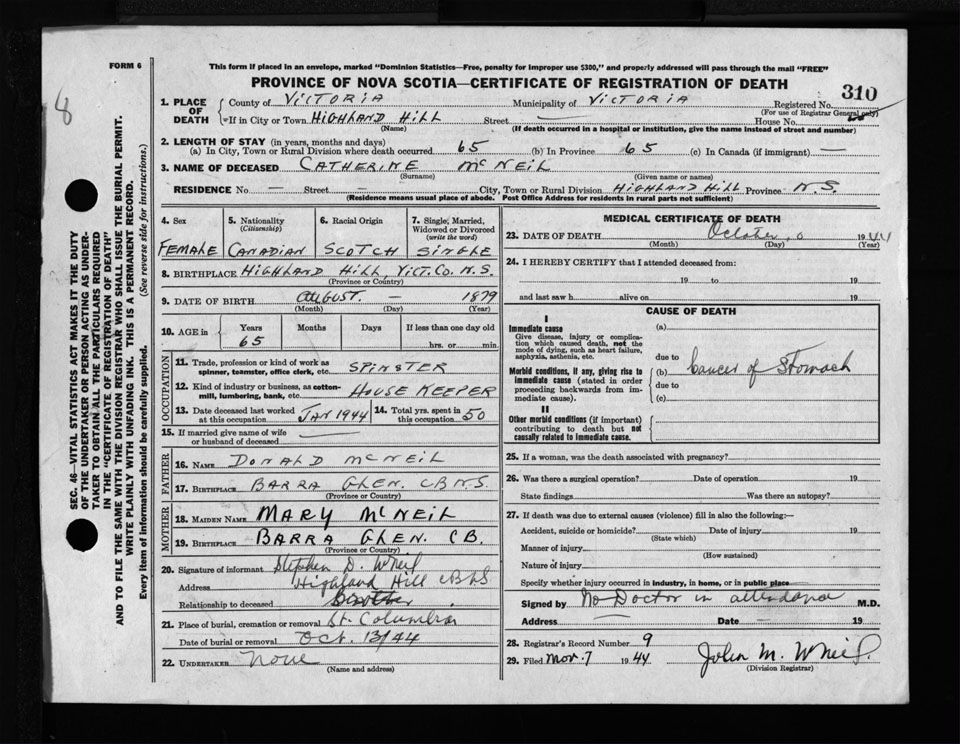 FORM 6
This form if placed in an envelope, marked "Dominion Statistics—Free, penalty for improper use $300," and properly addressed will pass through the mail "FREE"
PROVINCE OF NOVA SCOTIA—CERTIFICATE OF REGISTRATION OF DEATH
310
8
SEC. 46—VITAL STATISTICS ACT MAKES IT THE DUTY
OF THE UNDERTAKER OR PERSON ACTING AS UNDER-
TAKER TO OBTAIN ALL THE PARTICULARS REQUIRED
IN THE "CERTIFICATE OF REGISTRATION OF DEATH"
AND TO FILE THE SAME WITH THE DIVISION REGISTRAR WHO SHALL ISSUE THE BURIAL PERMIT.
WRITE PLAINLY WITH UNFADING INK. THIS IS A PERMANENT RECORD.
Every item of information should be carefully supplied. (See reverse side for instructions.)
1. PLACE OF DEATH County of VICTORIA Municipality of VICTORIA Registered No.
(For use of Registrar General only)
If in City or Town HIGHLAND HILL Street — House No.
(Name) (If death occurred in a hospital or institution, give the name instead of street and number)
2. LENGTH OF STAY (in years, months and days)
(a) In City, Town or Rural Division where death occurred 65 (b) In Province 65 (c) In Canada (if immigrant) —
3. NAME OF DECEASED CATHERINE McNEIL
(Surname) (Given name or names)
RESIDENCE No. — Street — City, Town or Rural Division HIGHLAND HILL Province N.S.
(Residence means usual place of abode. Post Office Address for residents in rural parts not sufficient)
4. Sex 5. Nationality (Citizenship) 6. Racial Origin 7. Single, Married, Widowed or Divorced (write the word)
FEMALE CANADIAN SCOTCH SINGLE
8. BIRTHPLACE HIGHLAND HILL, VICT. CO. N.S.
(Province or Country)
9. DATE OF BIRTH AUGUST — 1879
(Month) (Day) (Year)
10. AGE in Years Months Days If less than one day old
65 hrs. or min.
OCCUPATION
11. Trade, profession or kind of work as spinner, teamster, office clerk, etc. SPINSTER
12. Kind of industry or business, as cotton-mill, lumbering, bank, etc. HOUSE KEEPER
13. Date deceased last worked at this occupation JAN 1944 14. Total yrs. spent in this occupation 50
15. If married give name of wife or husband of deceased —
FATHER
16. NAME DONALD McNEIL
17. BIRTHPLACE BARRA GLEN. C B N.S.
(Province or Country)
MOTHER
18. MAIDEN NAME MARY McNEIL
19. BIRTHPLACE BARRA GLEN. C B.
(Province or Country)
20. Signature of informant Stephen D. McNeil
Address Highland Hill
Relationship to deceased Brother
21. Place of burial, cremation or removal St. Columba
Date of burial or removal Oct. 13/44
22. UNDERTAKER None
(Name and address)
MEDICAL CERTIFICATE OF DEATH
23. DATE OF DEATH October 1944
(Month) (Day) (Year)
24. I HEREBY CERTIFY that I attended deceased from:
19 to 19
and last saw h alive on 19
CAUSE OF DEATH
I
Immediate cause
Give disease, injury or complication which caused death, not the mode of dying, such as heart failure, asphyxia, asthenia, etc.
(a)
due to
Morbid conditions, if any, giving rise to immediate cause (stated in order proceeding backwards from immediate cause).
(b) Cancer of Stomach
due to
(c)
II
Other morbid conditions (if important) contributing to death but not causally related to immediate cause.
25. If a woman, was the death associated with pregnancy?
26. Was there a surgical operation? Date of operation 19
State findings Was there an autopsy?
27. If death was due to external causes (violence) fill in also the following:—
Accident, suicide or homicide? Date of injury 19
(State which)
Manner of injury
(How sustained)
Nature of injury
Specify whether injury occurred in industry, in home, or in public place
Signed by No Doctor in attendance M.D.
Address — Date — 19
28. Registrar's Record Number 9
29. Filed Nov. 7 1944 John M. McNeil.
(Division Registrar)